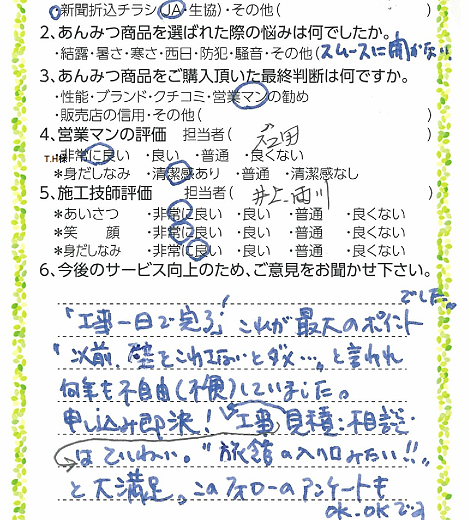 ・新聞折込チラシ(JA・生協)・その他( )
2、あんみつ商品を選ばれた際の悩みは何でしたか。
・結露・暑さ・寒さ・西日・防犯・騒音・その他(スムースに開かない
3、あんみつ商品をご購入頂いた最終判断は何ですか。
・性能・ブランド・クチコミ・営業マンの勧め
・販売店の信用・その他( )
4、営業マンの評価 担当者( 石田 )
T.H様 ・非常に良い ・良い ・普通 ・良くない
*身だしなみ ・清潔感あり ・普通 ・清潔感なし
5、施工技師評価 担当者( 井上・西川 )
*あいさつ ・非常に良い ・良い ・普通 ・良くない
*笑 顔 ・非常に良い ・良い ・普通 ・良くない
*身だしなみ ・非常に良い ・良い ・普通 ・良くない
6、今後のサービス向上のため、ご意見をお聞かせ下さい。
「工事一日で完了!」これが最大のポイントでした。
「以前、壁をこわさないとダメ…」と言われ
何年も不自由(不便)していました。
申し込み即決!工事、見積・相談
はていねい。"旅館の入り口みたい!!"
と大満足。このフォローのアンケートも
OK・OKです